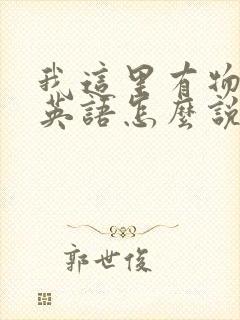 我這里有物
英語怎麼說
郭世俊